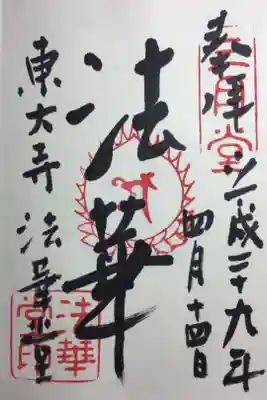 奉拝 平成二十九年
四月十四日
三月堂
法華
東大寺 法華堂
法華
堂印